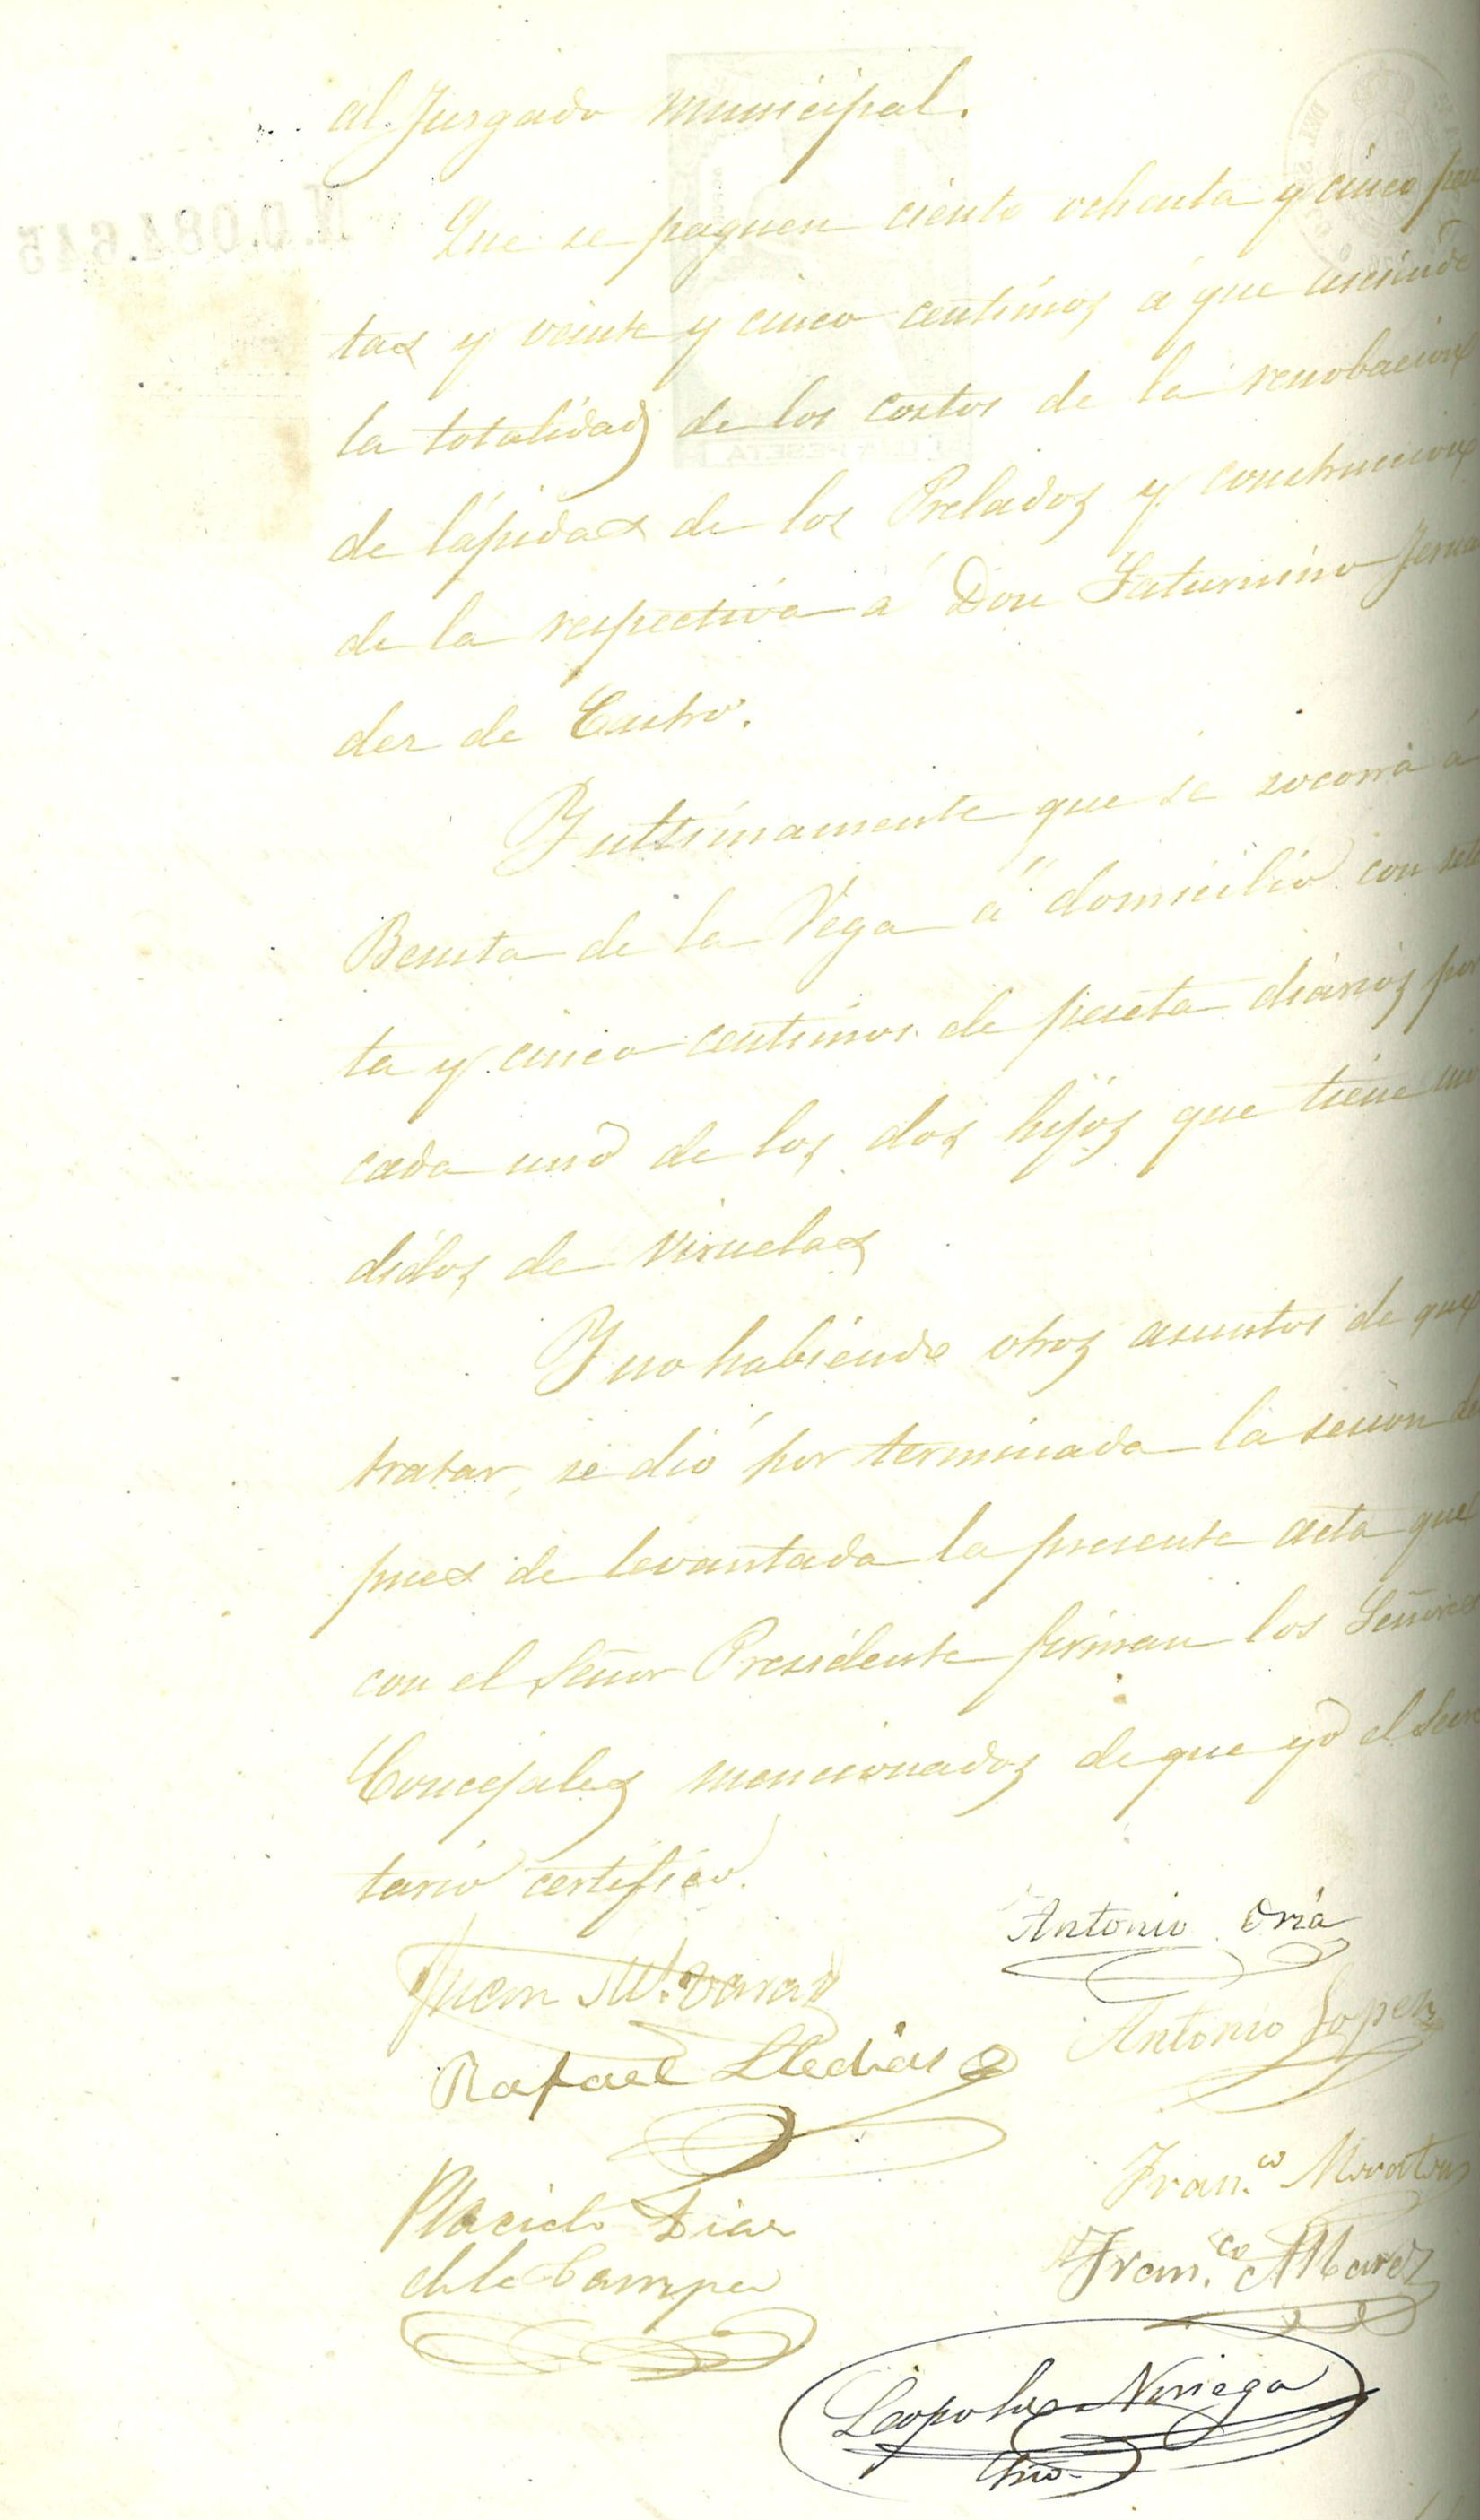 al Juzgado municipal.
Que se paguen ciento ochenta y cinco pese
tas y veinte y cinco centimos á que asciende
la totalidad de los costos de la renobacion
de lápidas de los Prelados y construccion
de la respectiva á Don Saturnino Fernan
dez de Castro.
Y ultimamente que se socorra á
Benita de la Vega á domicilio con seten
ta y cinco centimos de peseta diarios por
cada uno de los dos hijos que tiene inva
didos de viruelas
Y no habiendo otros asuntos de que
tratar, se dió por terminada la sesion des
pues de levantada la presente acta que
con el Señor Presidente firman los Señores
Concejales mencionados de que yo el Secre
tario certifico.
Antonio Oria
Juan M.
Antonio Lopez
Rafael Lledias
Fran.co
Placido Diaz
de la Campa
Fran.co Alvarez
Leopoldo Noriega
Srio.